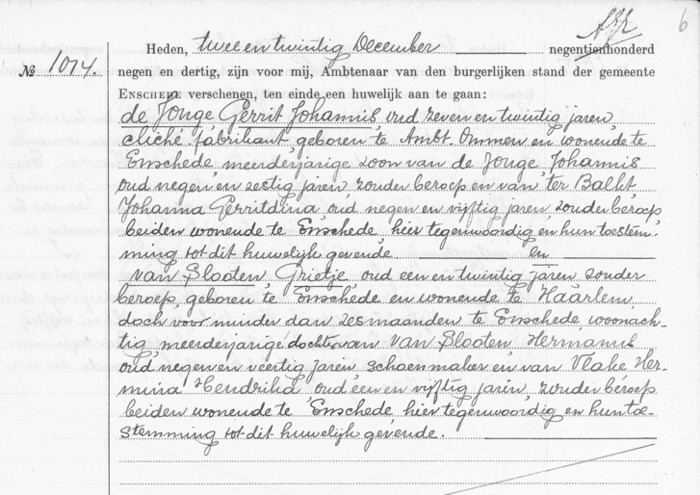 6
Heden, twee en twintig December negentienhonderd
No 1074. negen en dertig, zijn voor mij, Ambtenaar van den burgerlijken stand der gemeente
ENSCHEDE verschenen, ten einde een huwelijk aan te gaan:
de Jonge Gerrit Johannis, oud zeven en twintig jaren,
cliché fabrikant, geboren te Ambt-Ommen en wonende te
Enschede, meerderjarige zoon van de Jonge Johannis
oud negen en zestig jaren zonder beroep en van ter Balkt
Johanna Gerritdina, oud negen en vijftig jaren, zonder beroep
beiden wonende te Enschede, hier tegenwoordig en hun toestem-
ming tot dit huwelijk gevende en
van Slooten Grietje, oud een en twintig jaren zonder
beroep, geboren te Enschede en wonende te Haarlem,
doch voor minder dan zes maanden te Enschede, woonach-
tig, meerderjarige dochter van van Slooten Hermannus
oud negen en veertig jaren, schoenmaker en van Vlake Her-
mina Hendrika oud een en vijftig jaren, zonder beroep
beiden wonende te Enschede hier tegenwoordig en hun toe-
stemming tot dit huwelijk gevende.